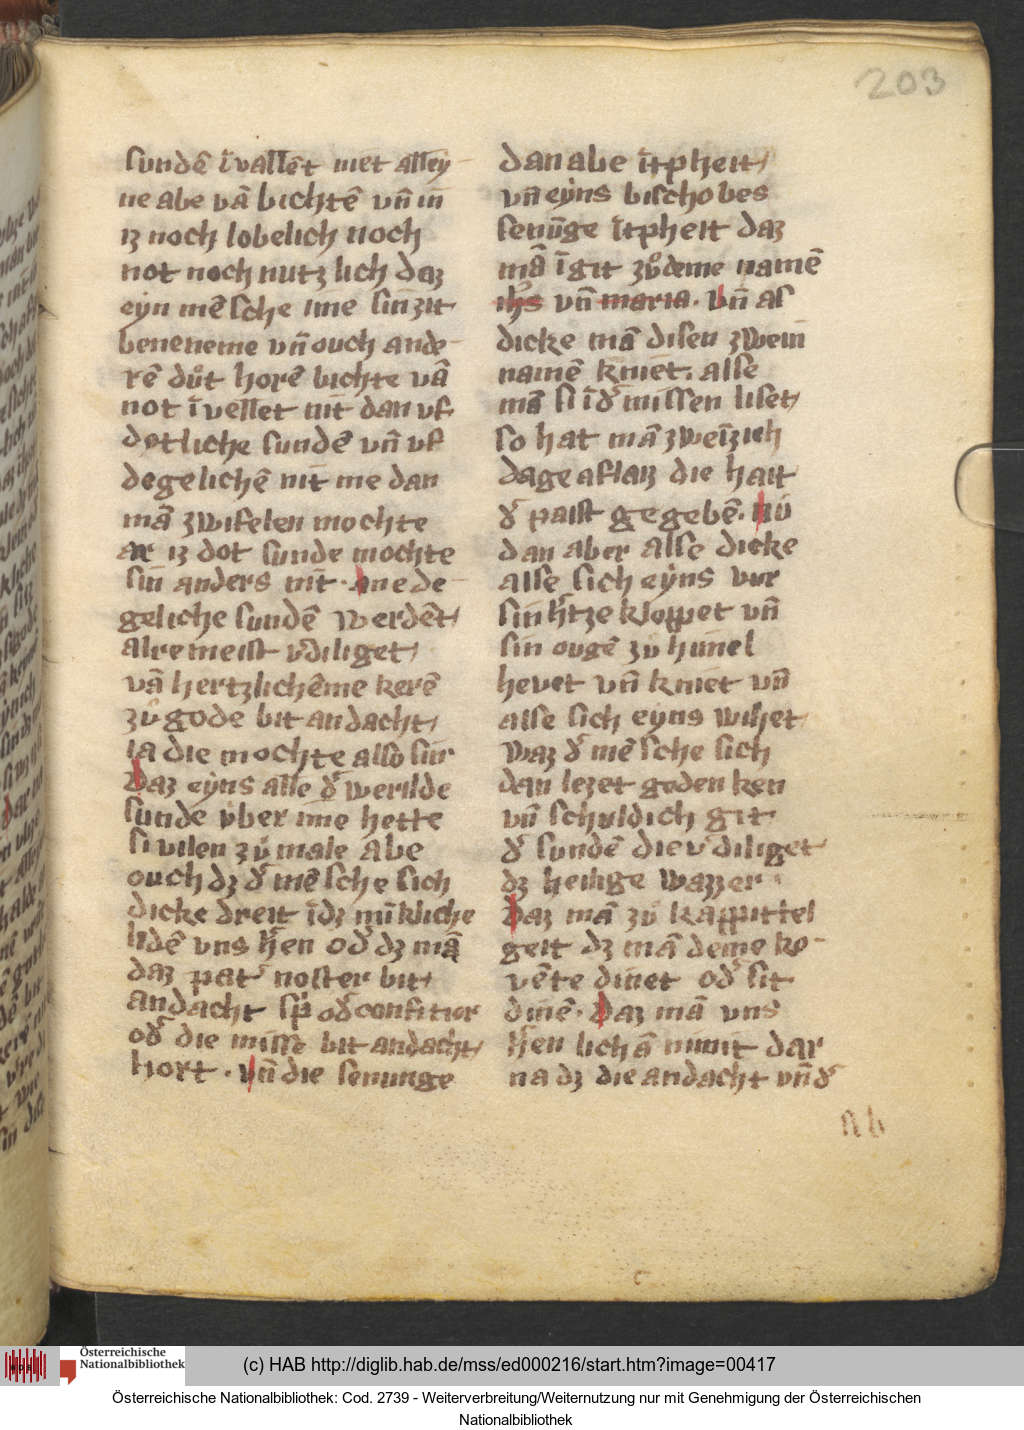 203
sundē ī vallēt niet alley
ne abe vā bichtē vn̄ in
iz noch lobelich noch
not noch nutz lich daz
eyn mēsche ime sin zit
beneneme vn̄ ouch ande
rē důt horē bichte vā
not ī vellet nit dan vf
dotliche sundē vn̄ vf
degelichē nit me dan
mā zwifelen mochte
iz dot sunde mochte
sin anders nit · ane de
geliche sundē werdēt
alre meist v̓diliget
vā hertzlichēme kerē
zů gode bit andacht
ia die mochte also sin
Daz eyns alle d̓ werilde
sunde vber ime hette
si vilen zů male abe
ouch dz d̓ mēsche sich
dicke dreit īdz mīkliche
lidē vns h̓en od̓ dz mā
daz pat̓ noster bit
andacht sp̓ od̓ confitior
od̓ die misse bit andacht
hort · vn̄ die senunge
dan abe īt pheit
vn̄ eyns bischobes
senūge īt pheit daz
mā ī git zů deme namē
ihs vn̄ maria · vn̄ as
dicke mā disen zwein
namē kniet · alse
mā si ī d̓ missen liset
so hat mā zweīzich
dage aflaz die hait
d̓ paist gegebē · Nů
dan aber alse dicke
alse sich eyns vur
sin h̓tze kloppet vn̄
sin ougē zů himel
hevet vn̄ kniet vn̄
alse sich eyns wihet
waz d̓ mēsche sich
dan lezet goden ken
vn̄ schuldich git
d̓ sundē die v̓diliget
dz heilige wazzer
Daz mā zů kappittel
geit dz mā deme ko
vēte dinet od̓ sit
dinē · Daz mā vns
h̓en lichā nimit dar
na dz die andacht vn̄ d̓
Österreichische
Nationalbibliothek
(c) HAB http://diglib.hab.de/mss/ed000216/start.htm?image=00417
Österreichische Nationalbibliothek: Cod. 2739 - Weiterverbreitung/Weiternutzung nur mit Genehmigung der Österreichischen
Nationalbibliothek